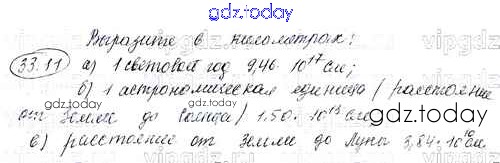 gdz.today
Выразите в километрах:
33.11 а) 1 световой год 9,46·10¹⁷ см;
б) 1 астрономическая единица (расстояние
gdz.today
от Земли до Солнца) 1.50·10¹³ см
в) расстояние от Земли до Луны 3,84·10¹⁰ см.